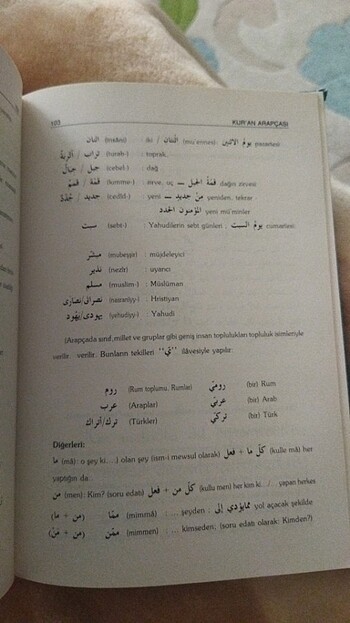 103 KUR'AN ARAPÇASI
اثنان (isnân) : iki / اثْنَتَانِ (mü'ennes) يومُ الاثنين pazartesi
تراب / أتْرِبَةٌ (turab-) : toprak
جبل / جِبَالٌ (cebel-) : dağ
قمّة / قِمَمٌ (kımme-) : zirve, uç قمّةُ الجَبَل dağın zirvesi
جديد / جُدُدٌ (cedîd-) : yeni مِنْ جَديد yeniden, tekrar
المؤمنون الجدد yeni mü'minler
سبت (sebt-) : Yahudilerin sebt günleri يومُ السبت cumartesi
مبشّر (mubeşşir) : müjdeleyici
نذير (nezîr) : uyarıcı
مسلم (muslim-) : Müslüman
نصرانى/نصارى (nasraniyy-) : Hristiyan
يهودى/يَهُود (yehudiyy-) : Yahudi
(Arapçada sınıf, millet ve gruplar gibi geniş insan toplulukları topluluk isimleriyle
verilir verilir. Bunların tekilleri "ىّ" ilâvesiyle yapılır:
روم (Rum toplumu, Rumlar) رومىّ (bir) Rum
عرب (Araplar) عربىّ (bir) Arab
ترك/أتراك (Türkler) تركىّ (bir) Türk
Diğerleri:
ما (mâ): o şey ki....) olan şey (ism-i mewsul olarak) كلّ ما + فعل (kulle mâ) her
yaptığın da
من (men): Kim? (soru edatı) كلّ من + فعل (kullu men) her kim ki.../... yapan herkes
(مِن + ما) ممّا (mimmâ) : ... şeyden ; ممايؤدي إلى yol açacak şekilde
(مِن + مَنْ) ممّن (mimmen) : ... kimseden; (soru edatı olarak: Kimden?)